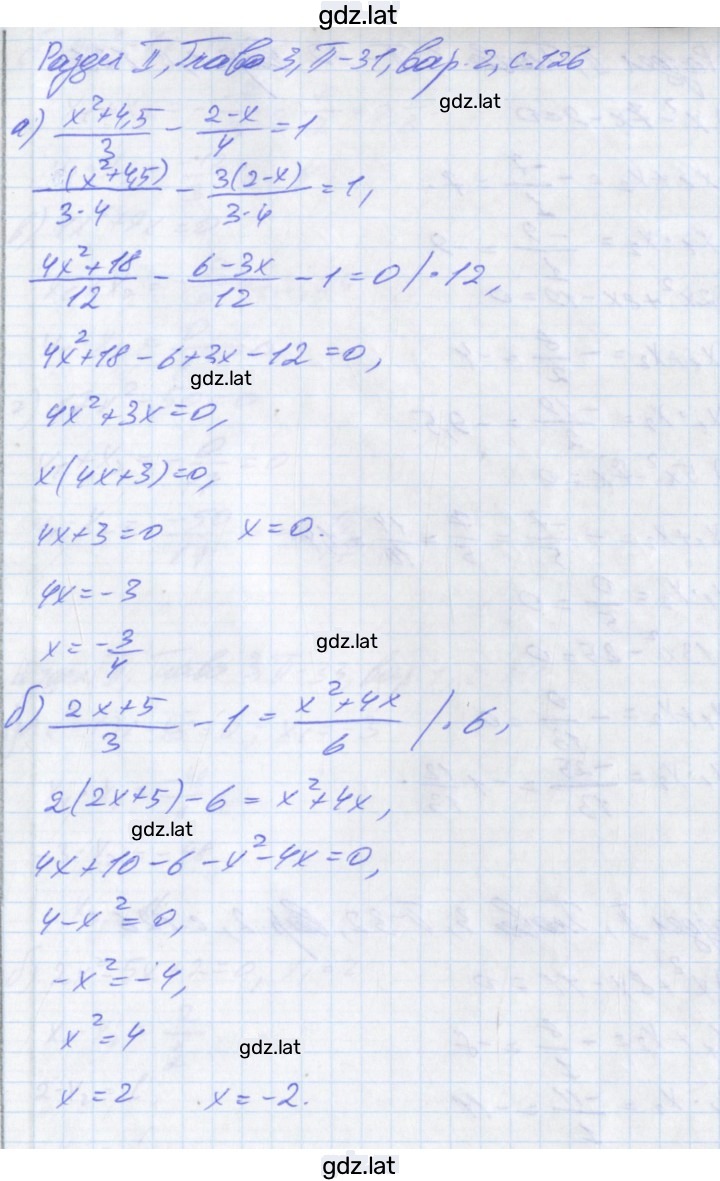 gdz.lat
Раздел II, Глава 3, П-31, вар. 2, с.126
gdz.lat
а) (x²+4,5)/3 - (2-x)/4 = 1
(x²+4,5)/(3·4) - 3(2-x)/(3·4) = 1,
(4x²+18)/12 - (6-3x)/12 - 1 = 0 /·12,
4x²+18-6+3x-12=0,
gdz.lat
4x²+3x=0,
x(4x+3)=0,
4x+3=0 x=0.
4x=-3
x=-3/4
gdz.lat
б) (2x+5)/3 - 1 = (x²+4x)/6 /·6,
2(2x+5)-6=x²+4x,
gdz.lat
4x+10-6-x²-4x=0,
4-x²=0,
-x²=-4,
x²=4
gdz.lat
x=2 x=-2.
gdz.lat